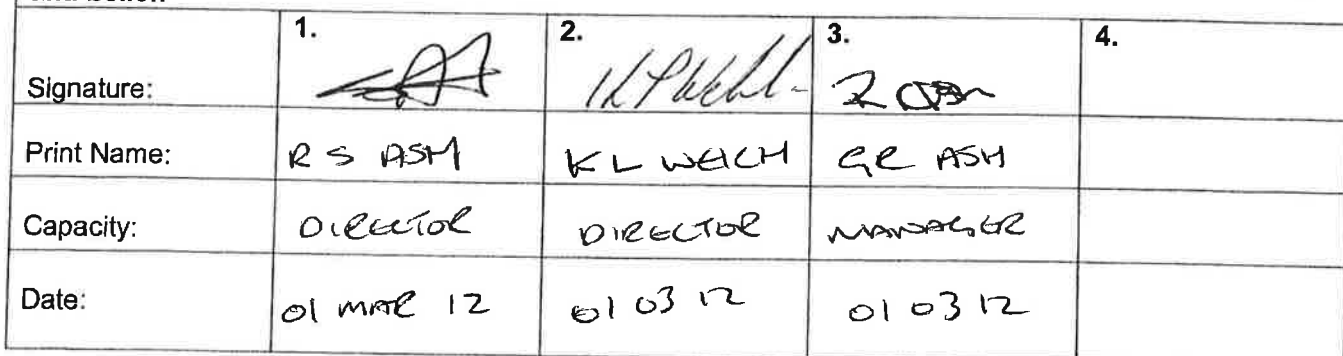 1. 2. 3. 4.
Signature:
Print Name: R S ASH K L WELCH GR ASH
Capacity: DIRECTOR DIRECTOR MANAGER
Date: 01 MAR 12 01 03 12 01 03 12